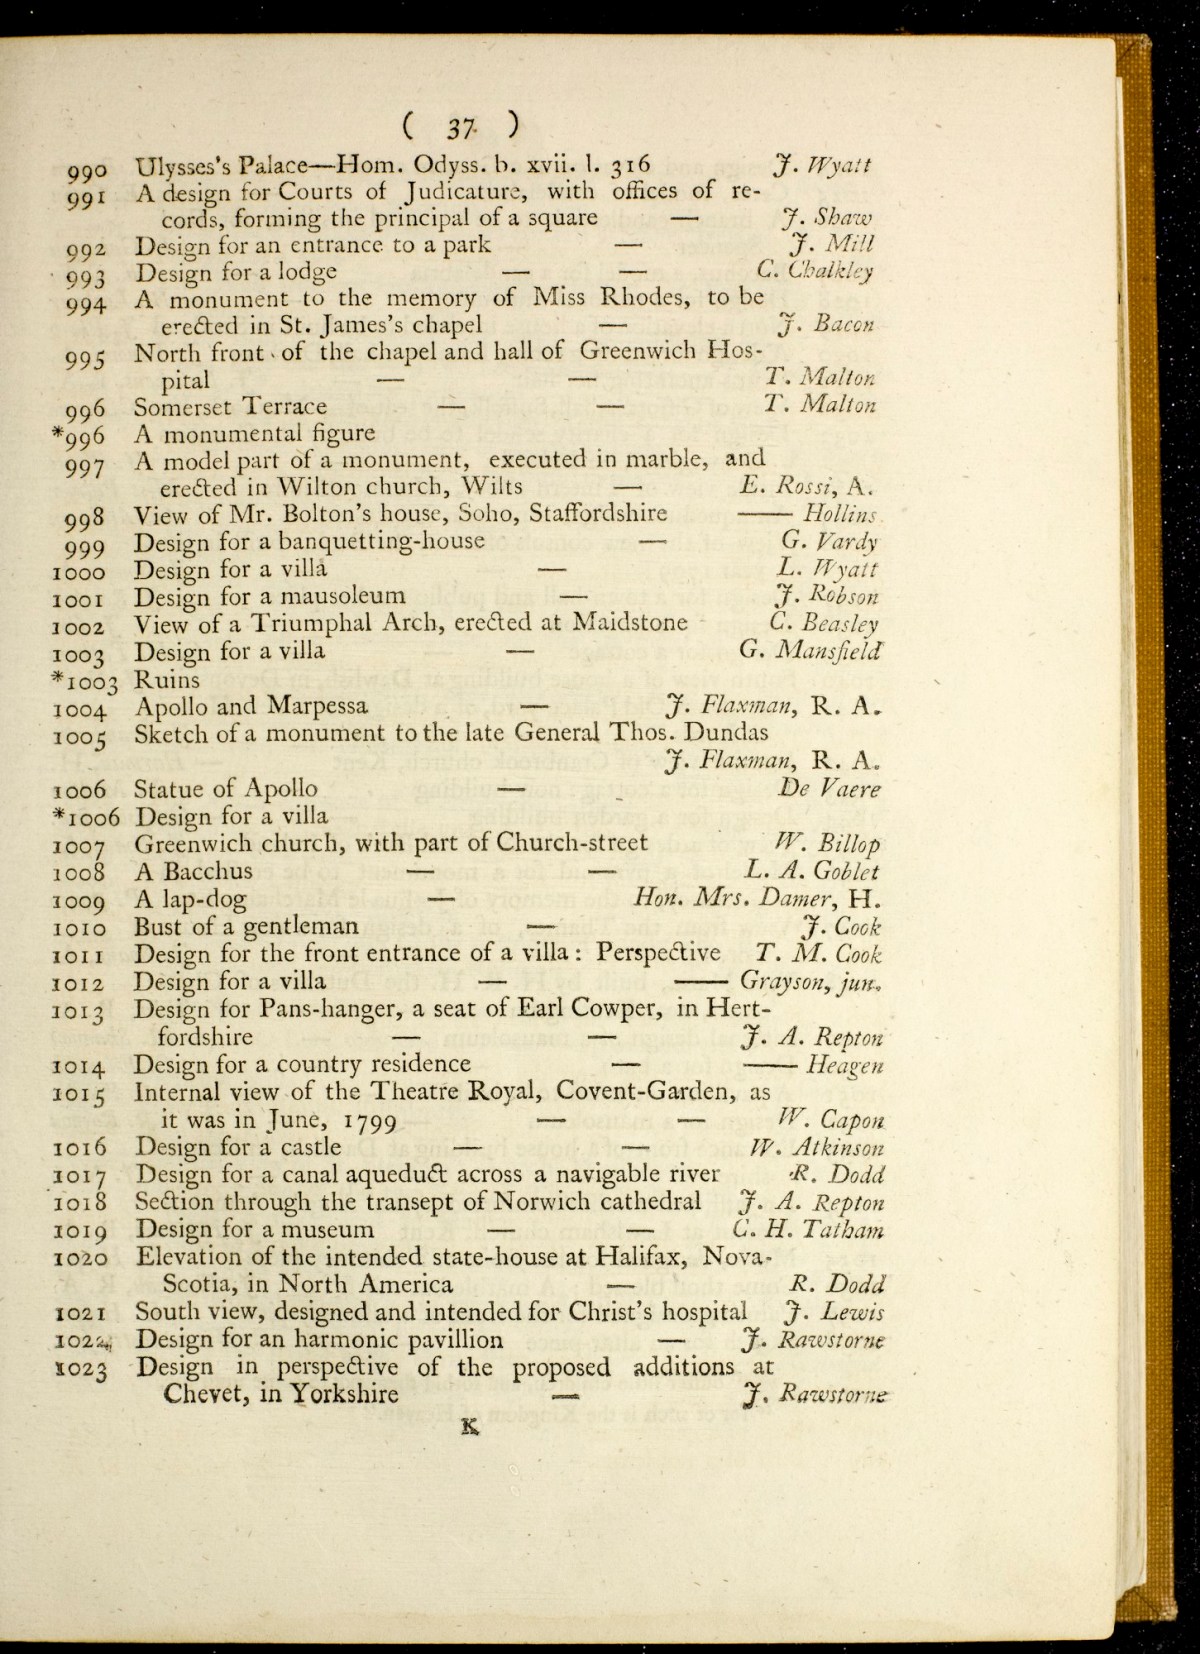 ( 37 )
990 Ulysses's Palace—Hom. Odyss. b. xvii. l. 316 J. Wyatt
991 A design for Courts of Judicature, with offices of re-
cords, forming the principal of a square — J. Shaw
992 Design for an entrance to a park — J. Mill
993 Design for a lodge — — C. Chalkley
994 A monument to the memory of Miss Rhodes, to be
erected in St. James's chapel — J. Bacon
995 North front of the chapel and hall of Greenwich Hos-
pital — — T. Malton
996 Somerset Terrace — — T. Malton
*996 A monumental figure
997 A model part of a monument, executed in marble, and
erected in Wilton church, Wilts — E. Rossi, A.
998 View of Mr. Bolton's house, Soho, Staffordshire —— Hollins
999 Design for a banquetting-house — G. Vardy
1000 Design for a villa — L. Wyatt
1001 Design for a mausoleum — J. Robson
1002 View of a Triumphal Arch, erected at Maidstone C. Beasley
1003 Design for a villa — G. Mansfield
*1003 Ruins
1004 Apollo and Marpessa — J. Flaxman, R. A.
1005 Sketch of a monument to the late General Thos. Dundas
J. Flaxman, R. A.
1006 Statue of Apollo — De Vaere
*1006 Design for a villa
1007 Greenwich church, with part of Church-street W. Billop
1008 A Bacchus — — L. A. Goblet
1009 A lap-dog — Hon. Mrs. Damer, H.
1010 Bust of a gentleman — J. Cook
1011 Design for the front entrance of a villa: Perspective T. M. Cook
1012 Design for a villa — —— Grayson, jun.
1013 Design for Pans-hanger, a seat of Earl Cowper, in Hert-
fordshire — — J. A. Repton
1014 Design for a country residence — —— Heagen
1015 Internal view of the Theatre Royal, Covent-Garden, as
it was in June, 1799 — — W. Capon
1016 Design for a castle — — W. Atkinson
1017 Design for a canal aqueduct across a navigable river R. Dodd
1018 Section through the transept of Norwich cathedral J. A. Repton
1019 Design for a museum — — C. H. Tatham
1020 Elevation of the intended state-house at Halifax, Nova-
Scotia, in North America — R. Dodd
1021 South view, designed and intended for Christ's hospital J. Lewis
1022 Design for an harmonic pavillion — J. Rawstorne
1023 Design in perspective of the proposed additions at
Chevet, in Yorkshire — J. Rawstorne
K